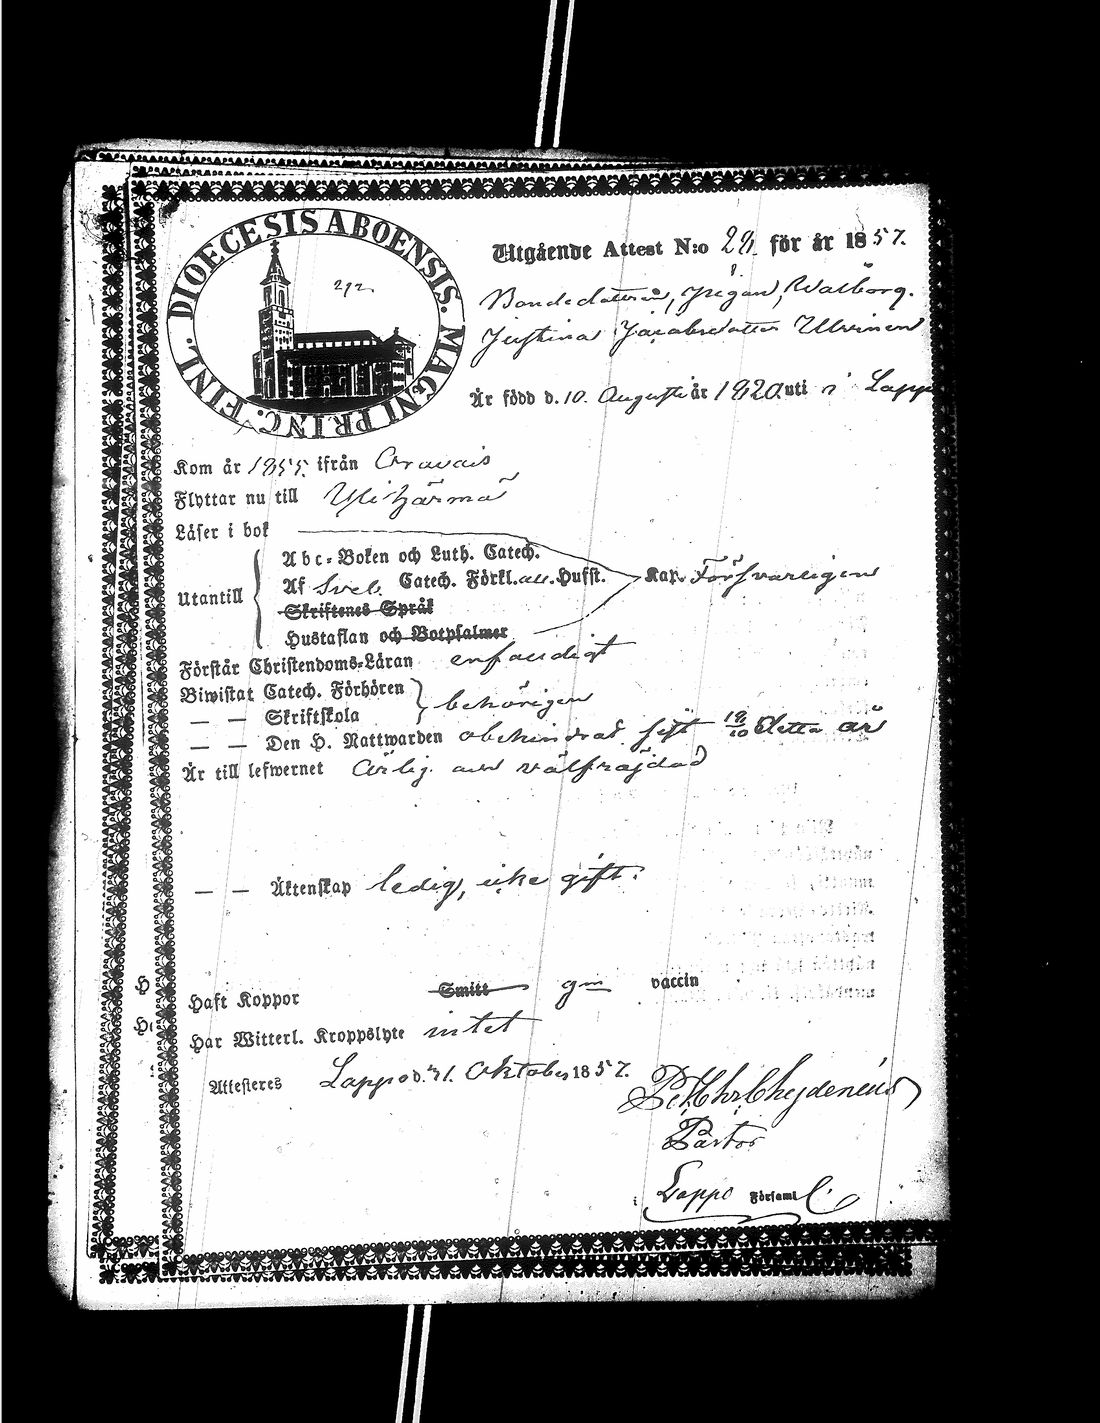 DIOECESIS ABOENSIS. MAGNI PRINC. FINL.
292
Utgående Attest N:o 28. för år 1857.
Bondedottren, Pigan, Walborg
Justina Jacobsdotter Ulvinen
Är född d. 10. Augusti år 1820. uti i Lappo
Kom år 1855. ifrån Oravais
Flyttar nu till Ylihärmä
Läser i bok
Utantill
Abc-Boken och Luth. Catech.
Af Sveb. Catech. Förkl. Husst. Kap. Försvarligen
Skriftenes Språk
Hustaflan och Botpsalmer
Förstår Christendoms-Läran enfaldigt
Biwistat Catech. Förhören
— — Skriftskola behörigen
— — Den H. Nattwarden obehindrad sist 18/10 detta år
Är till lefwernet ärlig och välfräjdad
— — Äktenskap ledig, icke gift.
Haft Koppor Smitt gm vaccin
Har Witterl. Kroppslyte intet
Attesteres Lappo d. 31. Oktober 1857.
Chydenius
Pastor
Lappo Församl